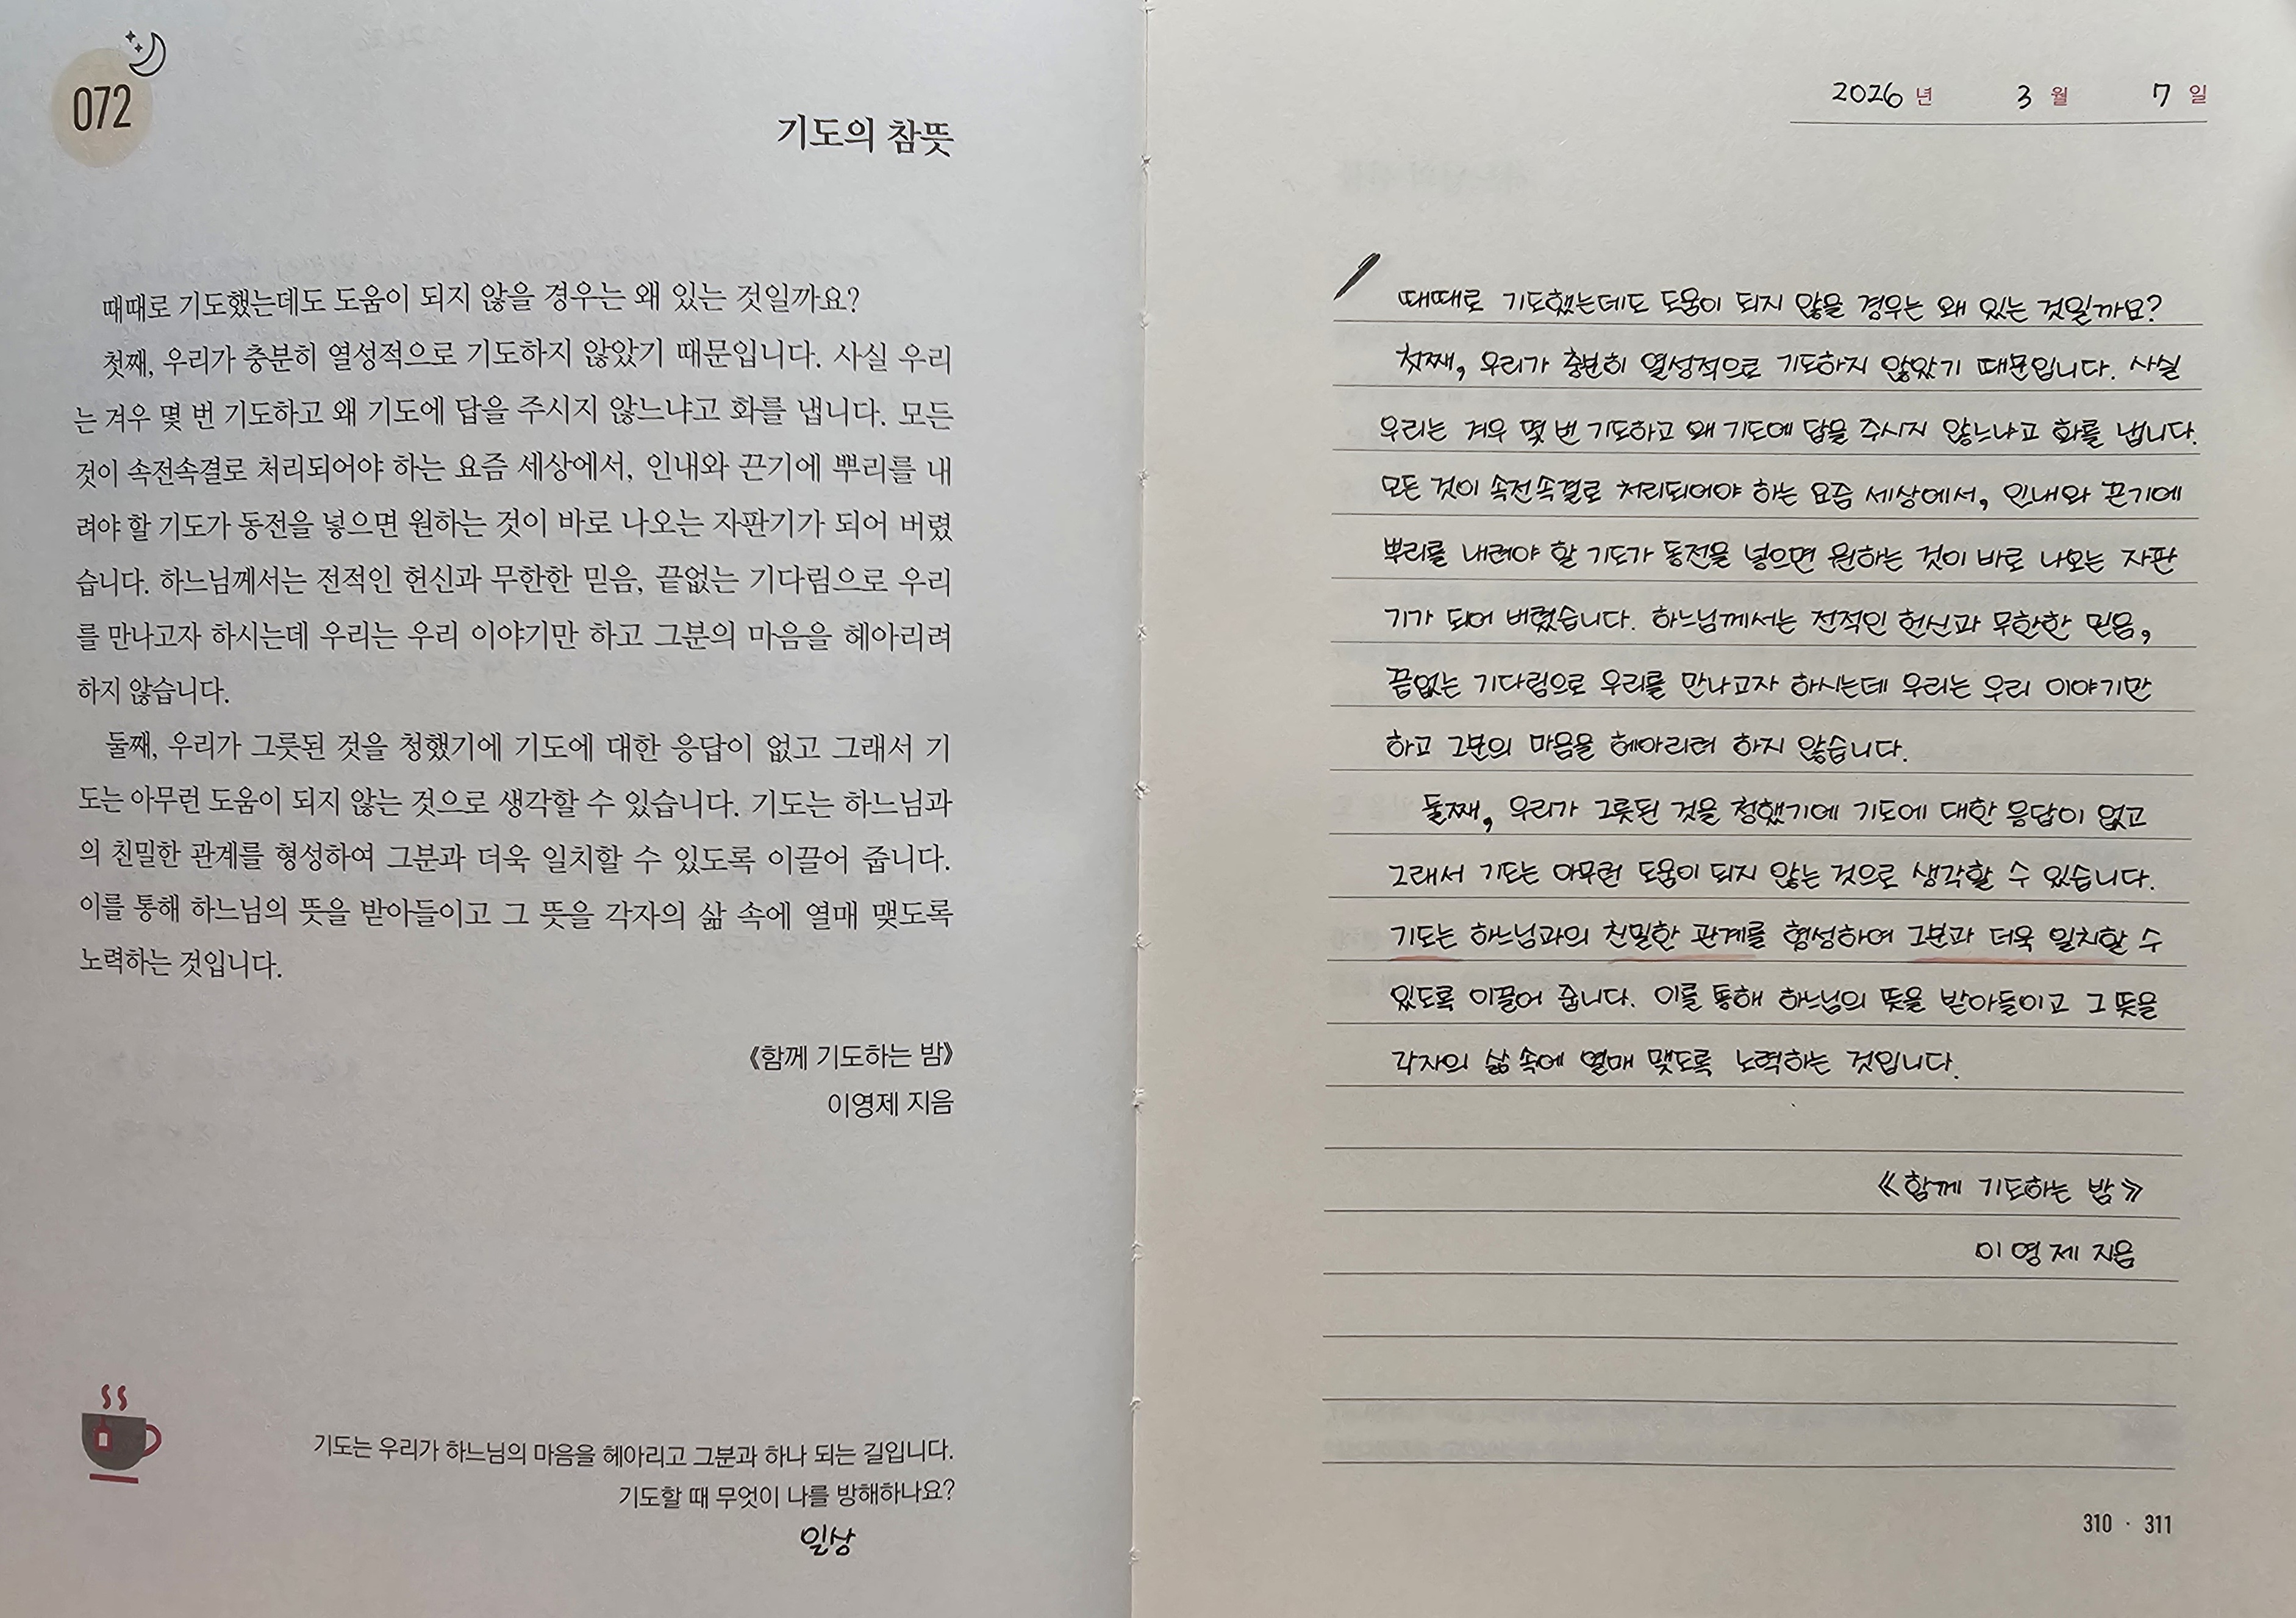 072
기도의 참뜻
때때로 기도했는데도 도움이 되지 않을 경우는 왜 있는 것일까요?
첫째, 우리가 충분히 열성적으로 기도하지 않았기 때문입니다. 사실 우리
는 겨우 몇 번 기도하고 왜 기도에 답을 주시지 않느냐고 화를 냅니다. 모든
것이 속전속결로 처리되어야 하는 요즘 세상에서, 인내와 끈기에 뿌리를 내
려야 할 기도가 동전을 넣으면 원하는 것이 바로 나오는 자판기가 되어 버렸
습니다. 하느님께서는 전적인 헌신과 무한한 믿음, 끝없는 기다림으로 우리
를 만나고자 하시는데 우리는 우리 이야기만 하고 그분의 마음을 헤아리려
하지 않습니다.
둘째, 우리가 그릇된 것을 청했기에 기도에 대한 응답이 없고 그래서 기
도는 아무런 도움이 되지 않는 것으로 생각할 수 있습니다. 기도는 하느님과
의 친밀한 관계를 형성하여 그분과 더욱 일치할 수 있도록 이끌어 줍니다.
이를 통해 하느님의 뜻을 받아들이고 그 뜻을 각자의 삶 속에 열매 맺도록
노력하는 것입니다.
《함께 기도하는 밤》
이영제 지음
기도는 우리가 하느님의 마음을 헤아리고 그분과 하나 되는 길입니다.
기도할 때 무엇이 나를 방해하나요?
일상
2026년 3월 7일
때때로 기도했는데도 도움이 되지 않을 경우는 왜 있는 것일까요?
첫째, 우리가 충분히 열성적으로 기도하지 않았기 때문입니다. 사실
우리는 겨우 몇 번 기도하고 왜 기도에 답을 주시지 않느냐고 화를 냅니다.
모든 것이 속전속결로 처리되어야 하는 요즘 세상에서, 인내와 끈기에
뿌리를 내려야 할 기도가 동전을 넣으면 원하는 것이 바로 나오는 자판
기가 되어 버렸습니다. 하느님께서는 전적인 헌신과 무한한 믿음,
끝없는 기다림으로 우리를 만나고자 하시는데 우리는 우리 이야기만
하고 그분의 마음을 헤아리려 하지 않습니다.
둘째, 우리가 그릇된 것을 청했기에 기도에 대한 응답이 없고
그래서 기도는 아무런 도움이 되지 않는 것으로 생각할 수 있습니다.
기도는 하느님과의 친밀한 관계를 형성하여 그분과 더욱 일치할 수
있도록 이끌어 줍니다. 이를 통해 하느님의 뜻을 받아들이고 그 뜻을
각자의 삶 속에 열매 맺도록 노력하는 것입니다.
《함께 기도하는 밤》
이영제 지음
310 · 311